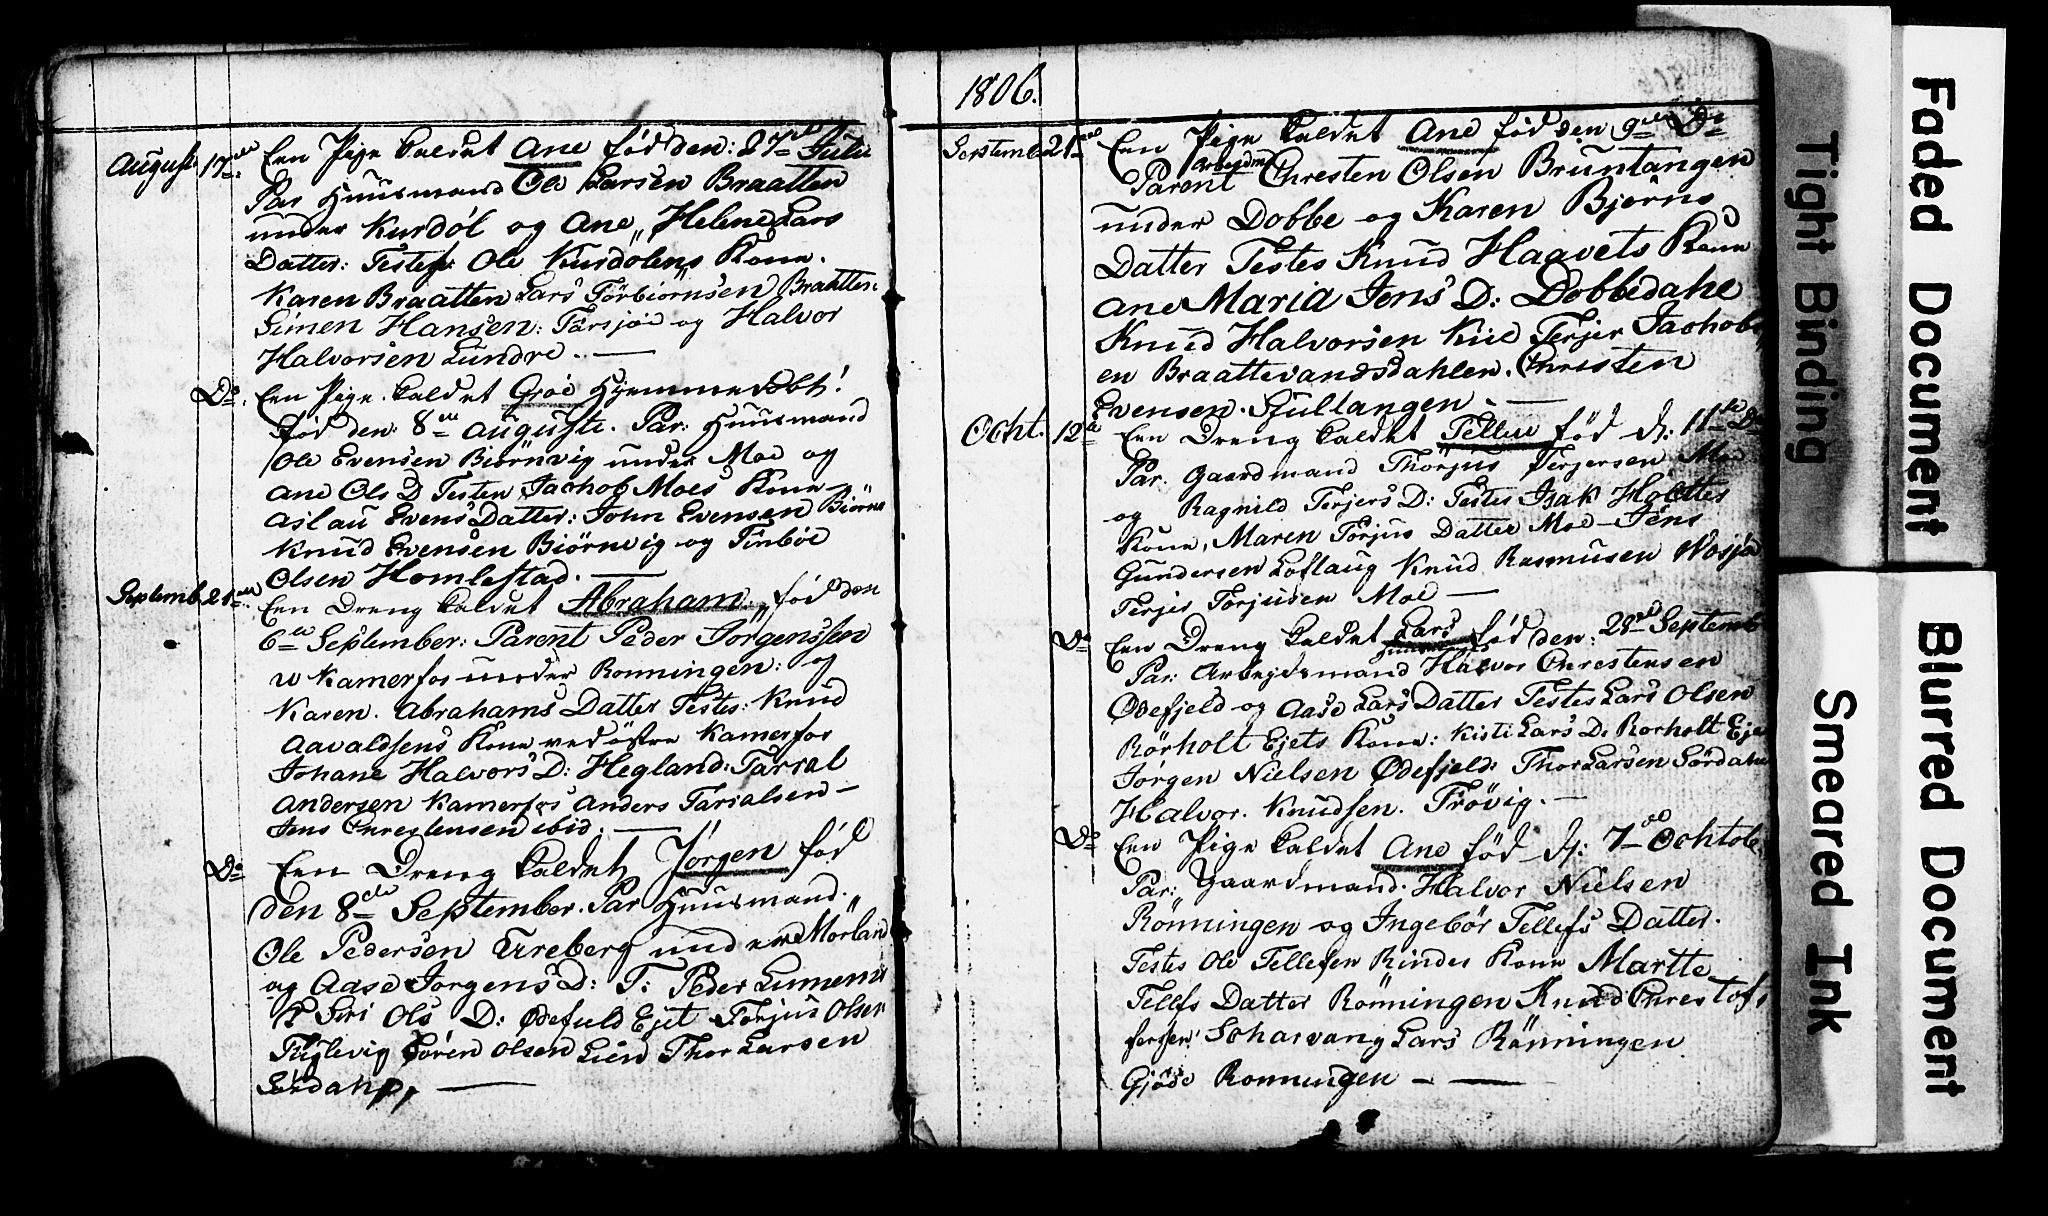 August 17de Een Pige kaldet Ane fød den: 27de Julii
Par Huusmand Ole Larsen Braatten
under Kurdøl og Ane Helene Lars
Datter: Testes Ole Kurdølens Kone.
Karen Braatten Lars Torbiørnsen Braatten:
Simen Hansen: Tarsjøe og Halvor
Halvorsen Lundre. —
Do. Een Pige kaldet Groe Hjemmedøbt!
fød den: 8de Auguste. Par: Huusmand
Ole Evensen Biørnvig under Moe og
Ane Ols D Testes Jachob Moes Kone
Aslau Evens Datter: John Evensen Biørnv
Knud Evensen Biørnvig og Tinbøe
Olsen Homlestad. —
Septemb 21de Een Dreng kaldet Abraham fød den
6te September: Parent Peder Jørgenssen
v Kamerfos under Ronningen: og
Karen. Abrahams Datter Testes: Knud
Aavaldsens Kone ved østre Kamerfos
Johane Halvors D: Hegland: Tarral
Andersen Kamerfos Anders Taraldsen —
Jens Chrestensen ibid. —
Do Een Dreng kaldet Jørgen fød
den 8de September. Par Huusmand
Ole Pedersen Ureberg under Mørland
og Aase Jorgens D: T: Peder
Siri Ols D: Ødefield Ejet Torjus Olsen
Fuglevig Søren Olsen Lien Thor Larsen
Sørdahl, —
1806.
Septemb 21de Een Pige kaldet Ane fød den 9de Do
Arbejdm
Parent Chresten Olsen Bruntangen
under Dobbe og Karen Bjørns
Datter Testes Knud Haavets Kone
Ane Maria Jens D: Dobbedahl
Knud Halvorsen Kiil Terjer Jachobs
en Braattevandsdahlen. Christen
Evensen. Stultangen. —
Ocht. 12te Een Dreng kaldet Tellev fød d: 11te Do
Par. Gaardmand Thorjus Terjersen Moe
og Ragnild Terjers D: Testes Isak Holtter
Kone, Maren Torjus Datter Moe — Jens
Gundersen Loflaug Knud Rasmusen Wosjø
Terjer Torjusen Moe —
Do Een Dreng kaldet Lars fød den: 28de Septemb
Huusmand
Par: Arbejdsmand Halvor Chrestensen
Ødefjeld og Aase Lars Datter Testes Lars Olsen
Rørholt Ejets Kone: Kisti Lars D. Rorholt Eje
Jørgen Nielsen Ødefjeld: Thor Larsen Sørdahl
Halvor. Knudsen. Trøvig. —
Do Een Pige kaldet Ane fød d: 7de Ochtob
Par: Gaardmand. Halvor Nielsen
Rønningen og Ingebør Tellefs Datter.
Testes Ole Tellefsen Rindes Kone Martte
Tellefs Datter Rønningen Knud Chrestof
fersen: Scharvang Lars Rønningen
Gjøde Ronningen — —
Faded Document
Tight Binding
Blurred Document
Smeared Ink